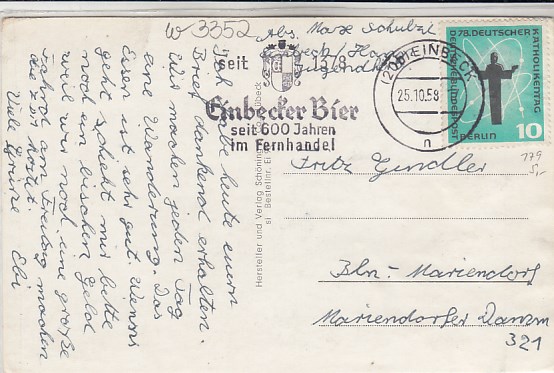 w 3352
Abs. Max Schulz
Einbeck / Han
Jugendh
seit 1378
Einbecker Bier
seit 600 Jahren
im Fernhandel
(20b) EINBECK
25.10.58
n
78. DEUTSCHER KATHOLIKENTAG
DEUTSCHE BUNDESPOST
BERLIN
10
779
5,-
Ich habe heute euern
Brief dankend erhalten.
Wir machen jeden Tag
eine Wanderung. Das
Essen ist sehr gut. Wenns
geht schickt mir bitte
noch ein bischen Geld
weil wir noch eine große
Fahrt am Freitag machen
die 2 DM kostet.
Viele Grüße Ebi
Hersteller und Verlag Schöning Lübeck
Bestellnr. Ei
Fritz Gendler
Bln-Mariendorf
Mariendorfer Damm
321